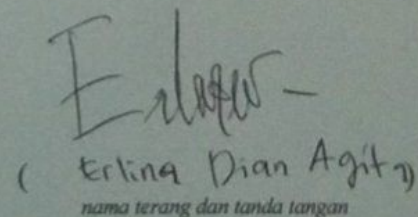 ( Erlina Dian Agita)
nama terang dan tanda tangan